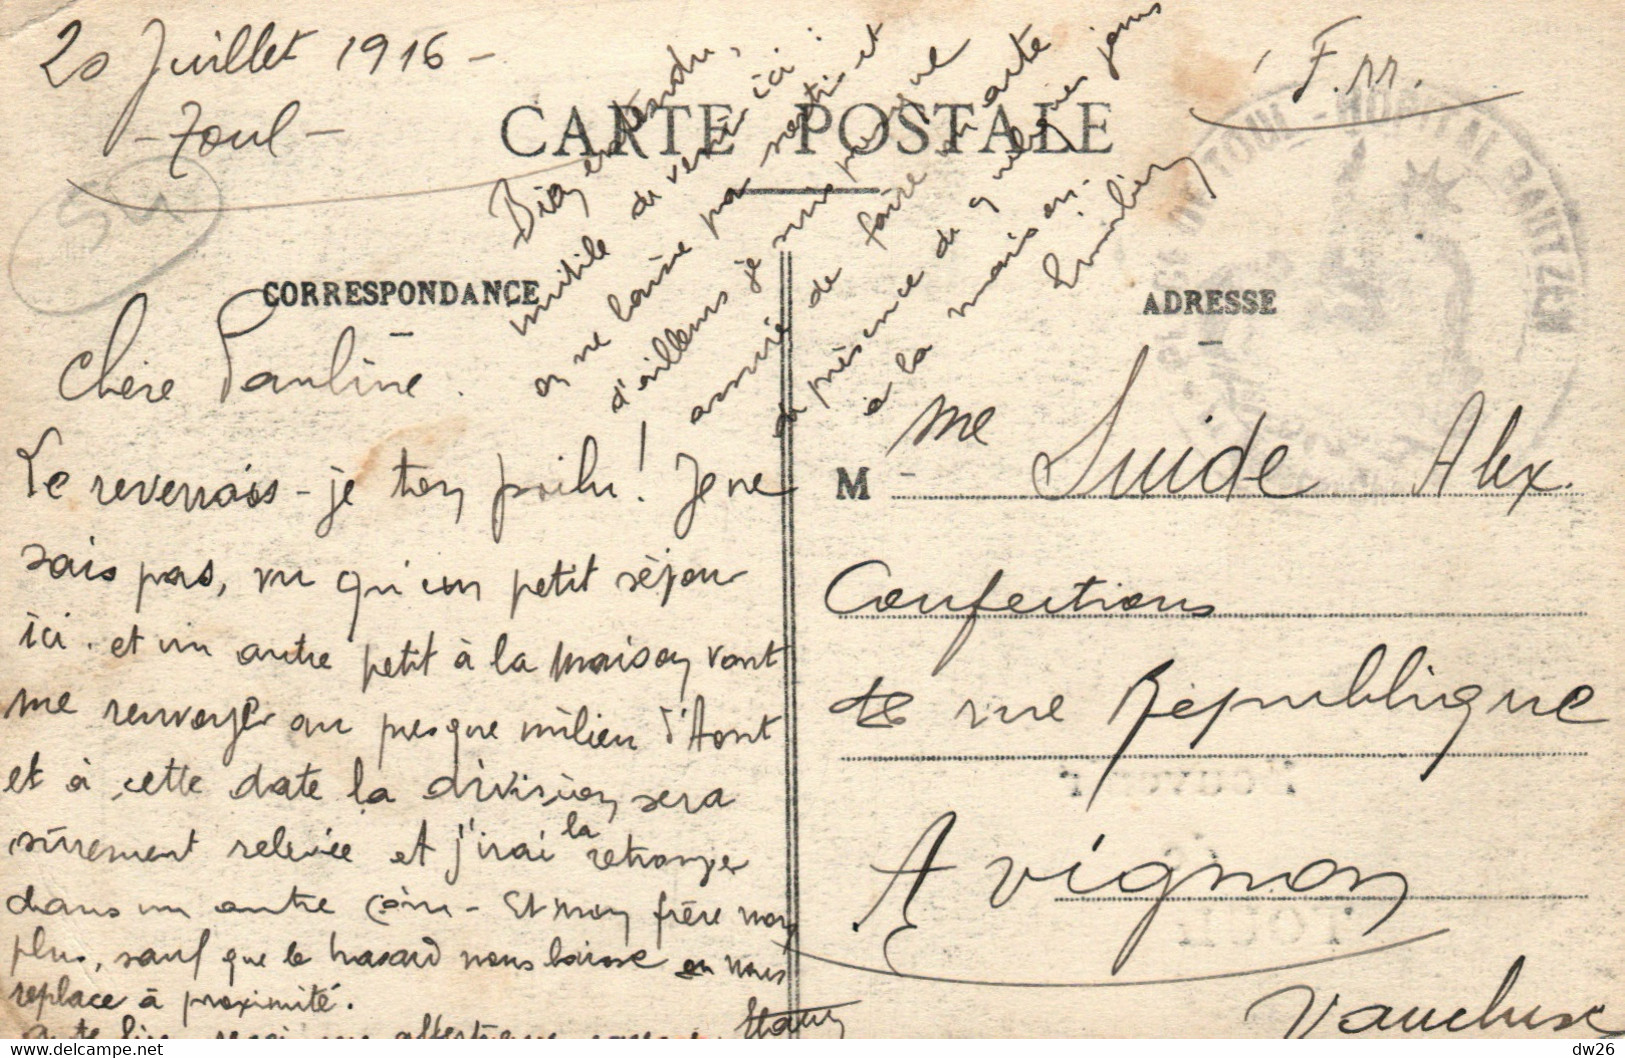 20 Juillet 1916 -
- Toul -
54
F.M.
CARTE POSTALE
PLACE DE TOUL - HOPITAL BAUTZEN
CORRESPONDANCE
ADRESSE
Chère Pauline.
Te reverrais-je ton poilu! Je ne
sais pas, vu qu'un petit séjour
ici. et un autre petit à la maison vont
me renvoyer au presque milieu d'Aout
et à cette date la division sera
sûrement relevée et j'irai la retrouver
dans un autre coin - Et mon frère non
plus, sauf que le hasard nous laisse ou nous
replace à proximité.
A te lire, reçois une affectueuse caresse
Bien entendu,
inutile de venir ici:
on ne laisse pas sortir et
d'ailleurs je suis presque
assuré de faire
présence de quelques jours
à la maison.
M me Suide Alex.
Confections
rue République
Avignon
TOUL
Vaucluse
dw26